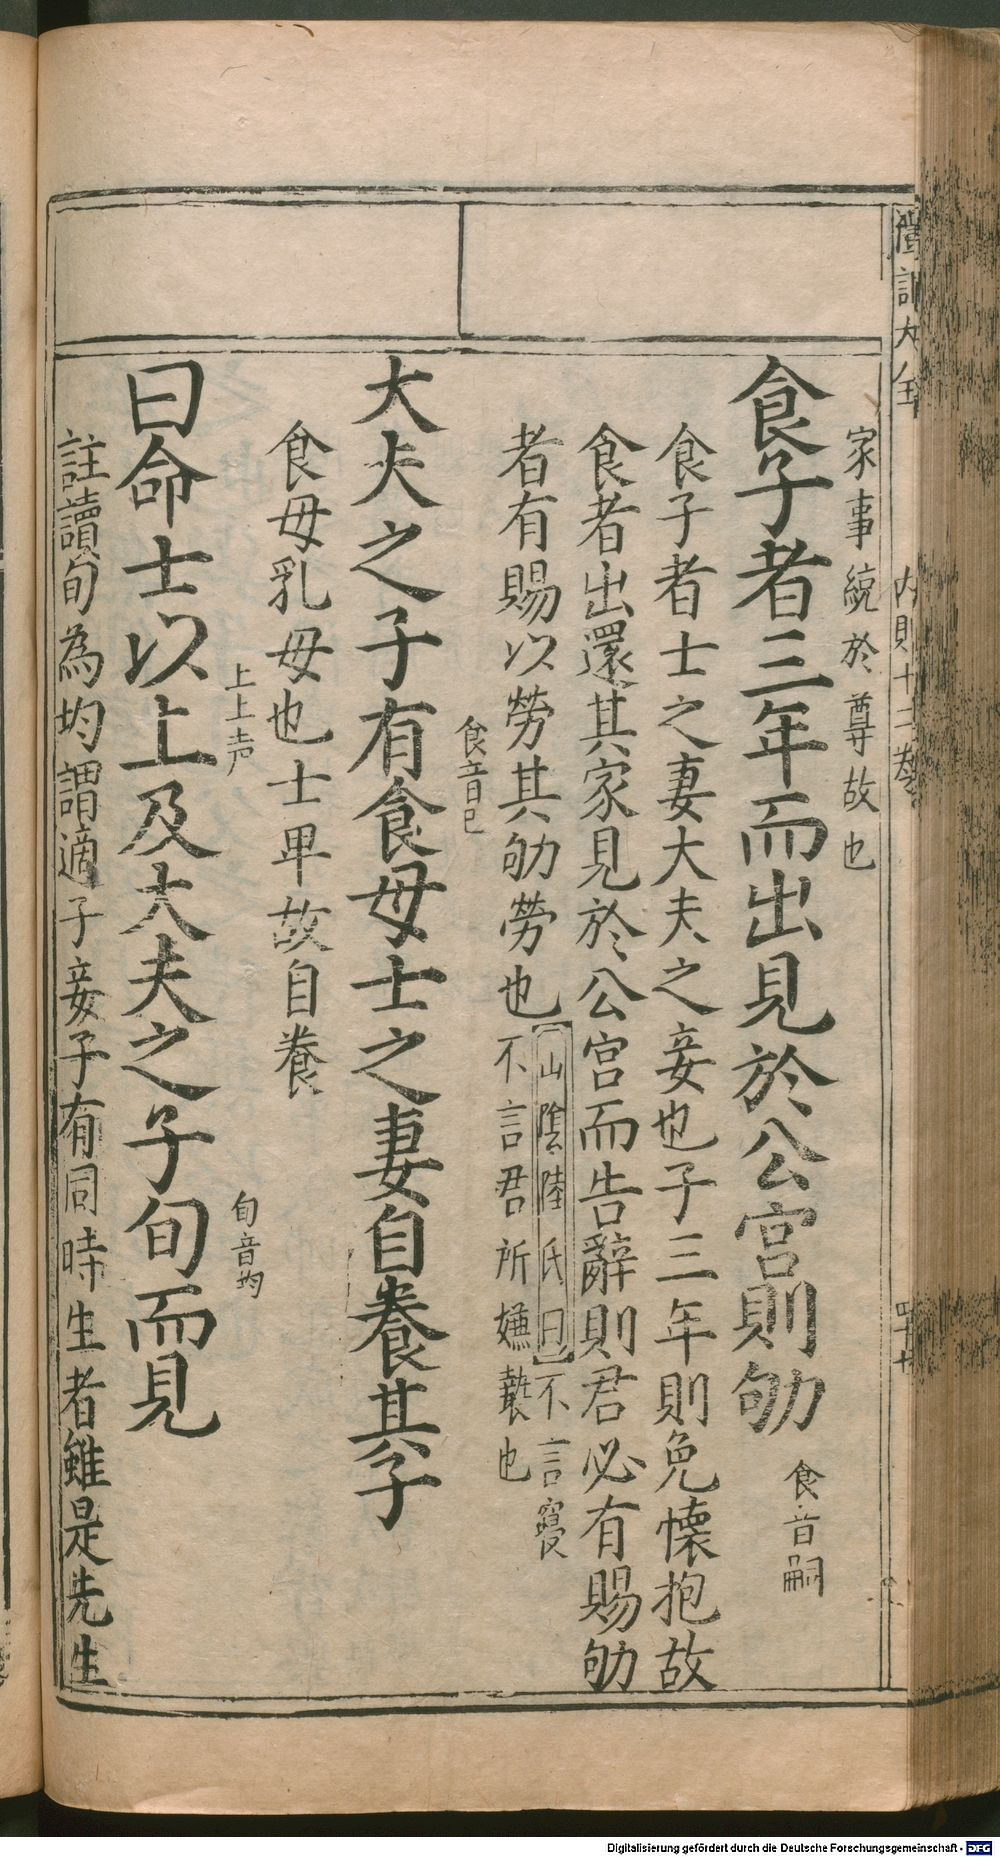 家事統於尊故也
食子者三年而出見於公宮則劬 食音嗣
食子者士之妻大夫之妾也子三年則免懷抱故
食者出還其家見於公宮而告辭則君必有賜劬
者有賜以勞其劬勞也 山陰陸氏曰 不言寑
不言君所嫌䙝也
食音巳
大夫之子有食母士之妻自養其子
食母乳母也士卑故自養
上上声 旬音均
曰命士以上及大夫之子旬而見
註讀旬為均謂適子妾子有同時生者雖是先生
訓大全 内則十二卷
Digitalisierung gefördert durch die Deutsche Forschungsgemeinschaft - DFG